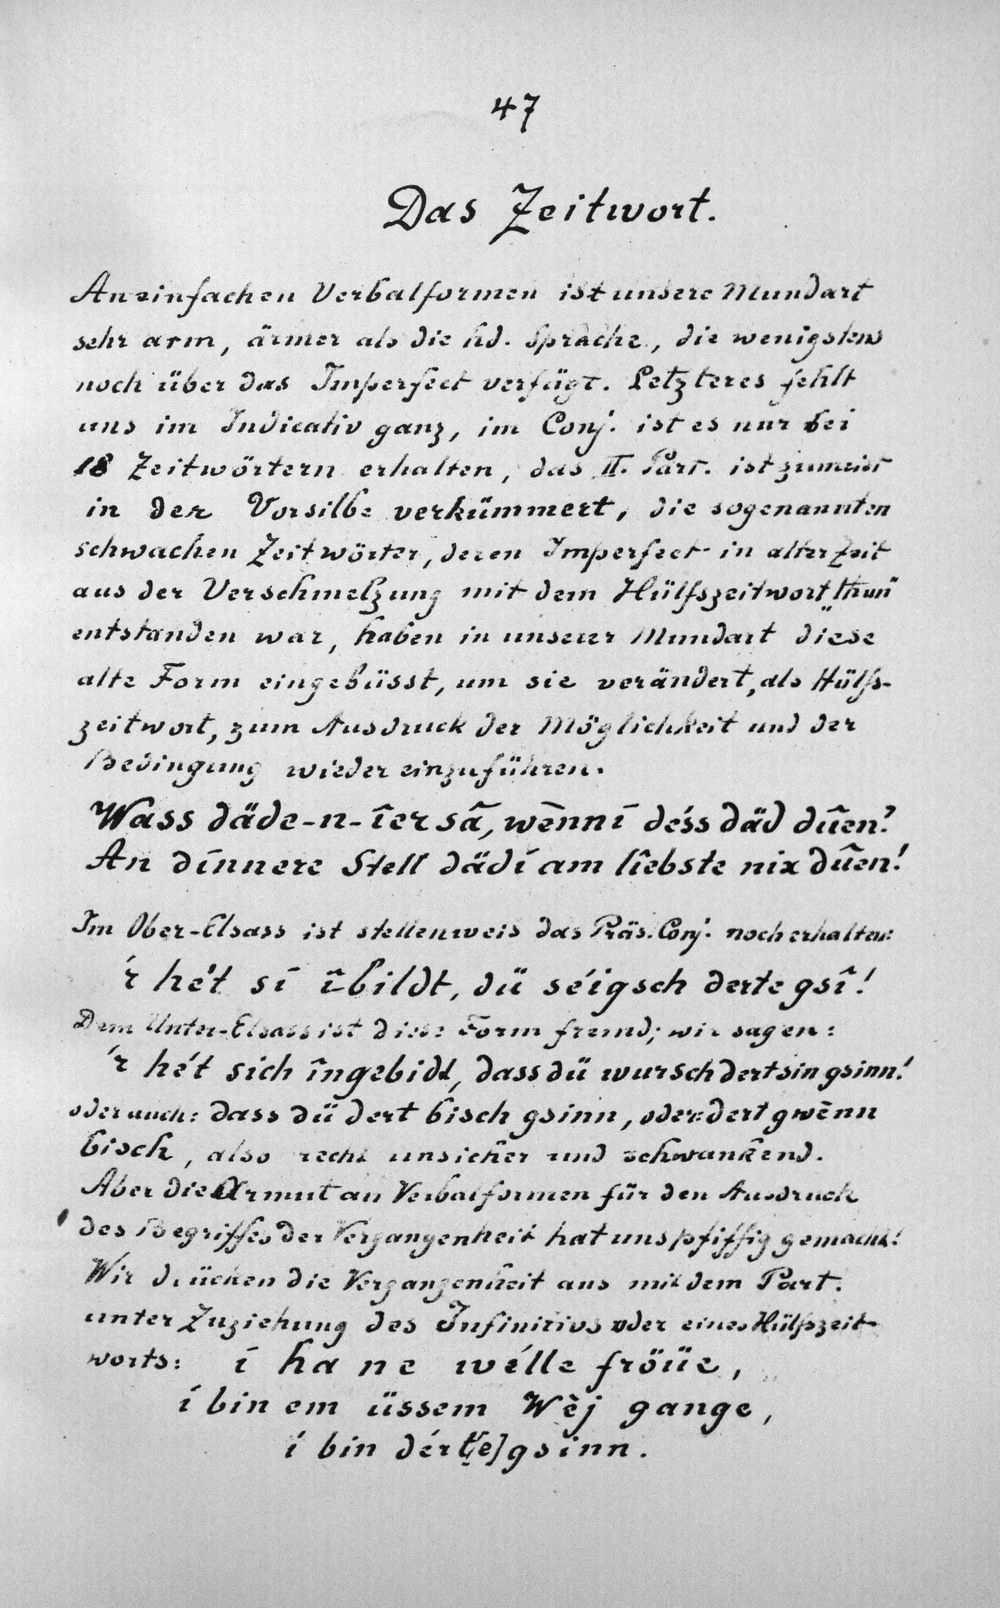 47
Das Zeitwort.
An einfachen Verbalformen ist unsere Mundart
sehr arm, ärmer als die hd. Sprache, die wenigstens
noch über das Imperfect verfügt. Letzteres fehlt
uns im Indicativ ganz, im Conj. ist es nur bei
18 Zeitwörtern erhalten, das II. Part. ist zumeist
in der Vorsilbe verkümmert, die sogenannten
schwachen Zeitwörter, deren Imperfect in alter Zeit
aus der Verschmelzung mit dem Hülfszeitwort „thun“
entstanden war, haben in unserer Mundart diese
alte Form eingebüsst, um sie verändert, als Hülfs-
zeitwort, zum Ausdruck der Möglichkeit und der
Bedingung wieder einzuführen.
Wass däde-n-îer sâ, wènní déss däd dûen?
An dínnere Stell dädí am lîebste nix dûen!
Im Ober-Elsass ist stellenweis das Präs. Conj. noch erhalten:
'r hét sí îbildt, dü séigsch derte gsî!
Dem Unter-Elsass ist diese Form fremd; wir sagen:
'r hét sich îngebidt, dass dü wursch dert sin gsinn!
oder auch: dass dü dert bisch gsinn, oder: dert gwènn
bisch, also recht unsicher und schwankend.
Aber die Armut an Verbalformen für den Ausdruck
des Begriffes der Vergangenheit hat uns pfiffig gemacht!
Wir drücken die Vergangenheit aus mit dem Part.
unter Zuziehung des Infinitivs oder eines Hülfszeit-
worts: í ha ne wélle fröüe,
í bin em üssem Wèj gange,
í bin dért[e] gsinn.